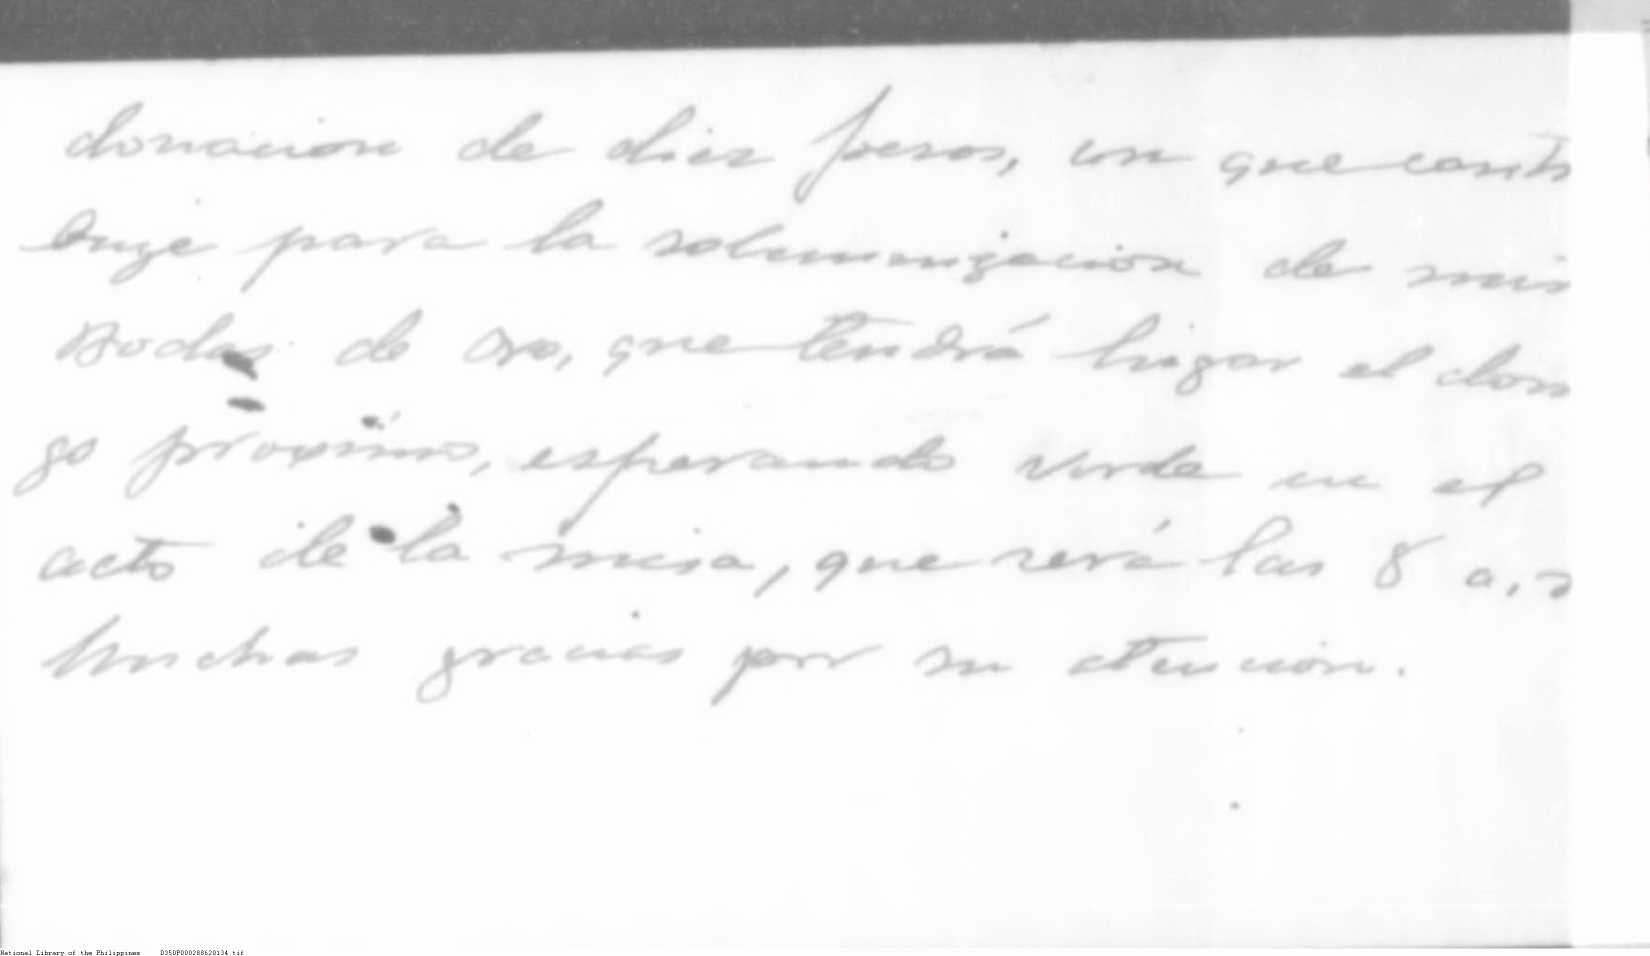 donacion de diez pesos, con que conti
buye para la solemnizacion de mis
Bodas de Oro, que tendrá lugar el dom
go proximo, esperando verde en el
acto de la misa, que será las 8 a.
Muchas gracias por su atencion.
National Library of the Philippines D350P000288620134.tif